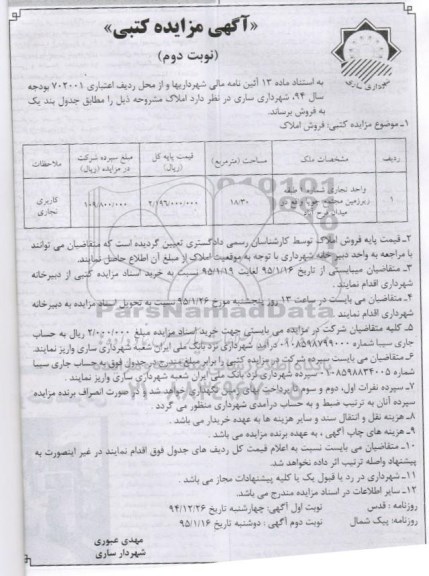 «آگهی مزایده کتبی»
(نوبت دوم)
شهرداری ساری
به استناد ماده ۱۳ آئین نامه مالی شهرداریها و از محل ردیف اعتباری ۷۰۲۰۰۱ بودجه
سال ۹۴، شهرداری ساری در نظر دارد املاک مشروحه ذیل را مطابق جدول بند یک
به فروش برساند.
۱ـ موضوع مزایده کتبی: فروش املاک
ردیف مشخصات ملک مساحت (مترمربع) قیمت پایه کل (ریال) مبلغ سپرده شرکت در مزایده (ریال) ملاحظات
۱ واحد تجاری شماره طبقه زیرزمین مجتمع میدان ۱۸/۳۰ ۲/۱۹۶/۰۰۰/۰۰۰ ۱۰۹/۸۰۰/۰۰۰ کاربری تجاری
۲ـ قیمت پایه فروش املاک توسط کارشناسان رسمی دادگستری تعیین گردیده است که متقاضیان می توانند
با مراجعه به واحد دبیرخانه شهرداری با توجه به موقعیت املاک از مبلغ آن اطلاع حاصل نمایند.
۳ـ متقاضیان میبایستی از تاریخ ۹۵/۱/۱۶ لغایت ۹۵/۱/۱۹ نسبت به خرید اسناد مزایده کتبی از دبیرخانه
شهرداری اقدام نمایند.
۴ـ متقاضیان می بایست در ساعت ۱۳ روز پنجشنبه مورخ ۹۵/۱/۲۶ نسبت به تحویل اسناد مزایده به دبیرخانه
شهرداری اقدام نمایند
۵ـ کلیه متقاضیان شرکت در مزایده می بایستی جهت خرید اسناد مزایده مبلغ ۲/۰۰۰/۰۰۰ ریال به حساب
جاری سیبا شماره ۰۱۰۸۵۹۸۷۹۹۰۰۰ درآمد شهرداری نزد بانک ملی ایران شعبه شهرداری ساری واریز نمایند.
۶ـ متقاضیان می بایست سپرده شرکت در مزایده کتبی را برابر مبلغ مندرج در جدول فوق به حساب جاری سیبا
شماره ۰۱۰۸۵۹۸۸۳۴۰۰۵ سپرده شهرداری نزد بانک ملی ایران شعبه شهرداری ساری واریز نمایند.
۷ـ سپرده نفرات اول، دوم و سوم تا پرداخت بهای زمین نگهداری خواهد شد و در صورت انصراف برنده مزایده
سپرده آنان به ترتیب ضبط و به حساب درآمدی شهرداری منظور می گردد
۸ـ هزینه نقل و انتقال سند و سایر هزینه ها به عهده خریدار می باشد.
۹ـ هزینه های چاپ آگهی، به عهده برنده مزایده می باشد.
۱۰ـ متقاضیان می بایست نسبت به اعلام قیمت کل ردیف های جدول فوق اقدام نمایند در غیر اینصورت به
پیشنهاد واصله ترتیب اثر داده نخواهد شد.
۱۱ـ شهرداری در رد یا قبول یک یا کلیه پیشنهادات مجاز می باشد.
۱۲ـ سایر اطلاعات در اسناد مزایده مندرج می باشد.
روزنامه: قدس نوبت اول آگهی: چهارشنبه تاریخ ۹۴/۱۲/۲۶
روزنامه: پیک شمال نوبت دوم آگهی: دوشنبه تاریخ ۹۵/۱/۱۶
مهدی عبوری
شهردار ساری
ParsNamadData